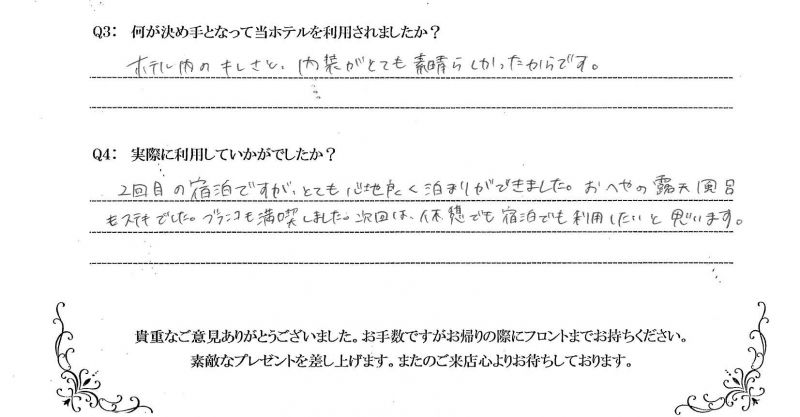 Q3: 何が決め手となって当ホテルを利用されましたか？
ホテル内のキレさと、内装がとても素晴らしかったからです。
Q4: 実際に利用していかがでしたか？
2回目の宿泊ですが、とても心地良く泊まりができました。おへやの露天風呂
もステキでした。ブランコも満喫しました。次回は、休憩でも宿泊でも利用したいと思います。
貴重なご意見ありがとうございました。お手数ですがお帰りの際にフロントまでお持ちください。
素敵なプレゼントを差し上げます。またのご来店心よりお待ちしております。